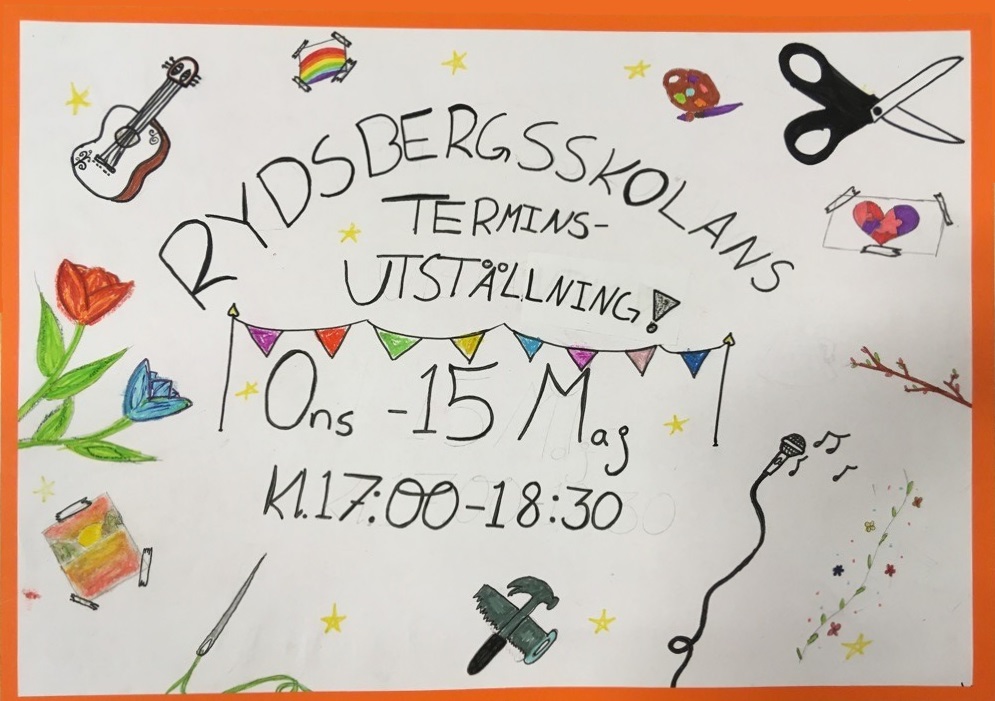 RYDSBERGSSKOLANS
TERMINS-
UTSTÅLLNING!
Ons -15 Maj
Kl.17:00-18:30